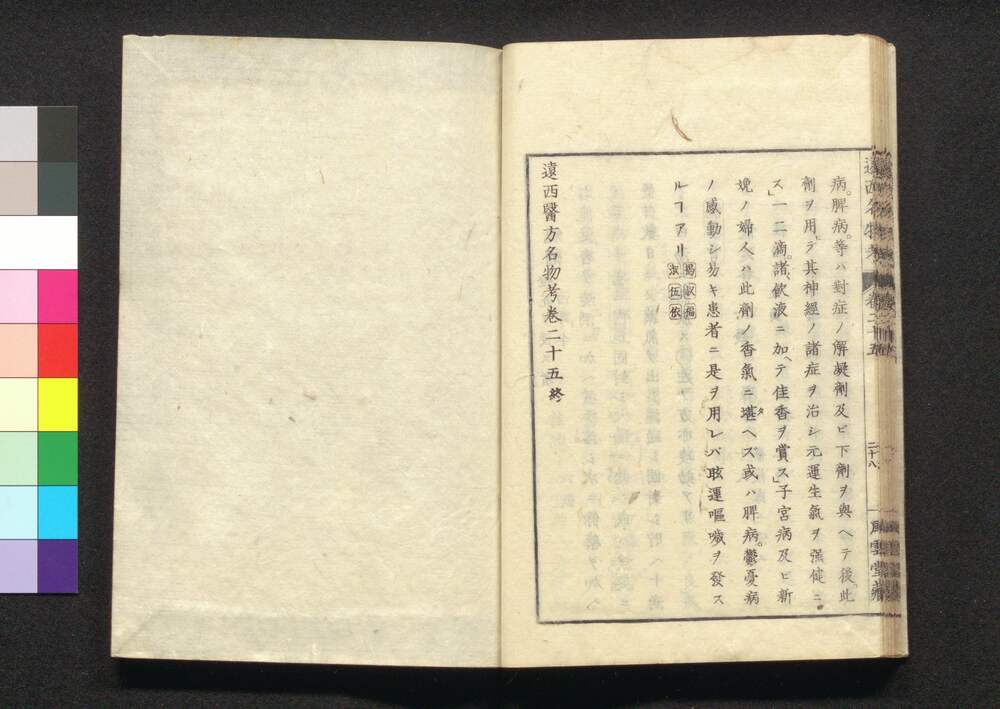 病脾病等ハ對症ノ解凝劑及ビ下劑ヲ與ヘテ後此
劑ヲ用テ其神經ノ諸症ヲ治シ元運生氣ヲ强健ニ
ス」一二滴諸飮液ニ加ヘテ佳香ヲ賞ス」子宮病及ビ新
娩ノ婦人ハ此劑ノ香氣ニ堪ヘズ或ハ脾病鬱憂病
ノ感動シ易キ患者ニ是ヲ用レバ眩運嘔噦ヲ發ス
ルヿアリ
遠西醫方名物考卷二十五終
遠西名物考
卷二十五
二十八